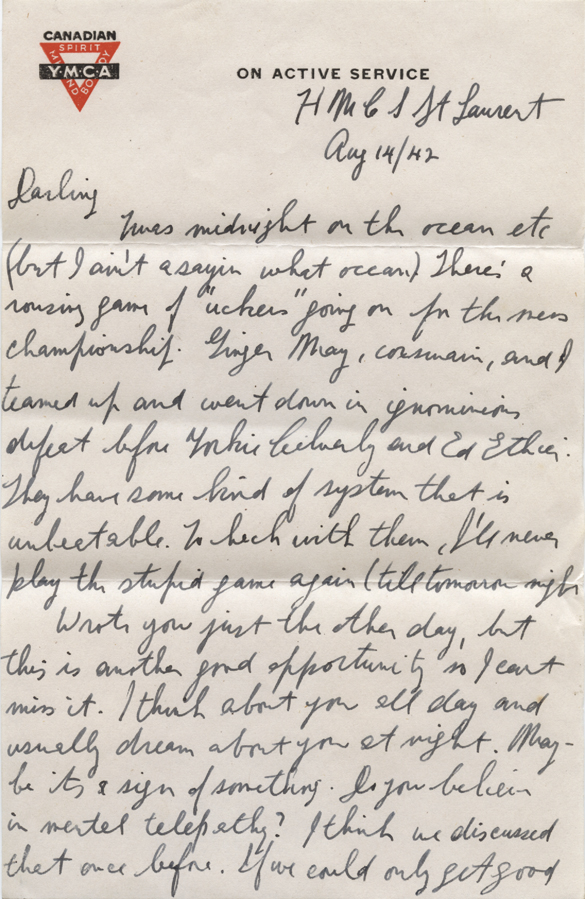 CANADIAN
SPIRIT
MIND BODY
Y·M·C·A
ON ACTIVE SERVICE
H M C S St Laurent
Aug 14/42
Darling
Twas midnight on the ocean etc
(but I ain't a sayin what ocean) There's a
rousing game of "uckers" going on for the mess
championship. Ginger May, coxswain, and I
teamed up and went down in ignominious
defeat before Yorkie and Ed Ethier.
They have some kind of system that is
unbeatable. To heck with them, I'll never
play the stupid game again (till tomorrow night
Wrote you just the other day, but
this is another good opportunity so I can't
miss it. I think about you all day and
usually dream about you at night. May-
be its a sign of something. Do you believe
in mental telepathy? I think we discussed
that once before. If we could only get good